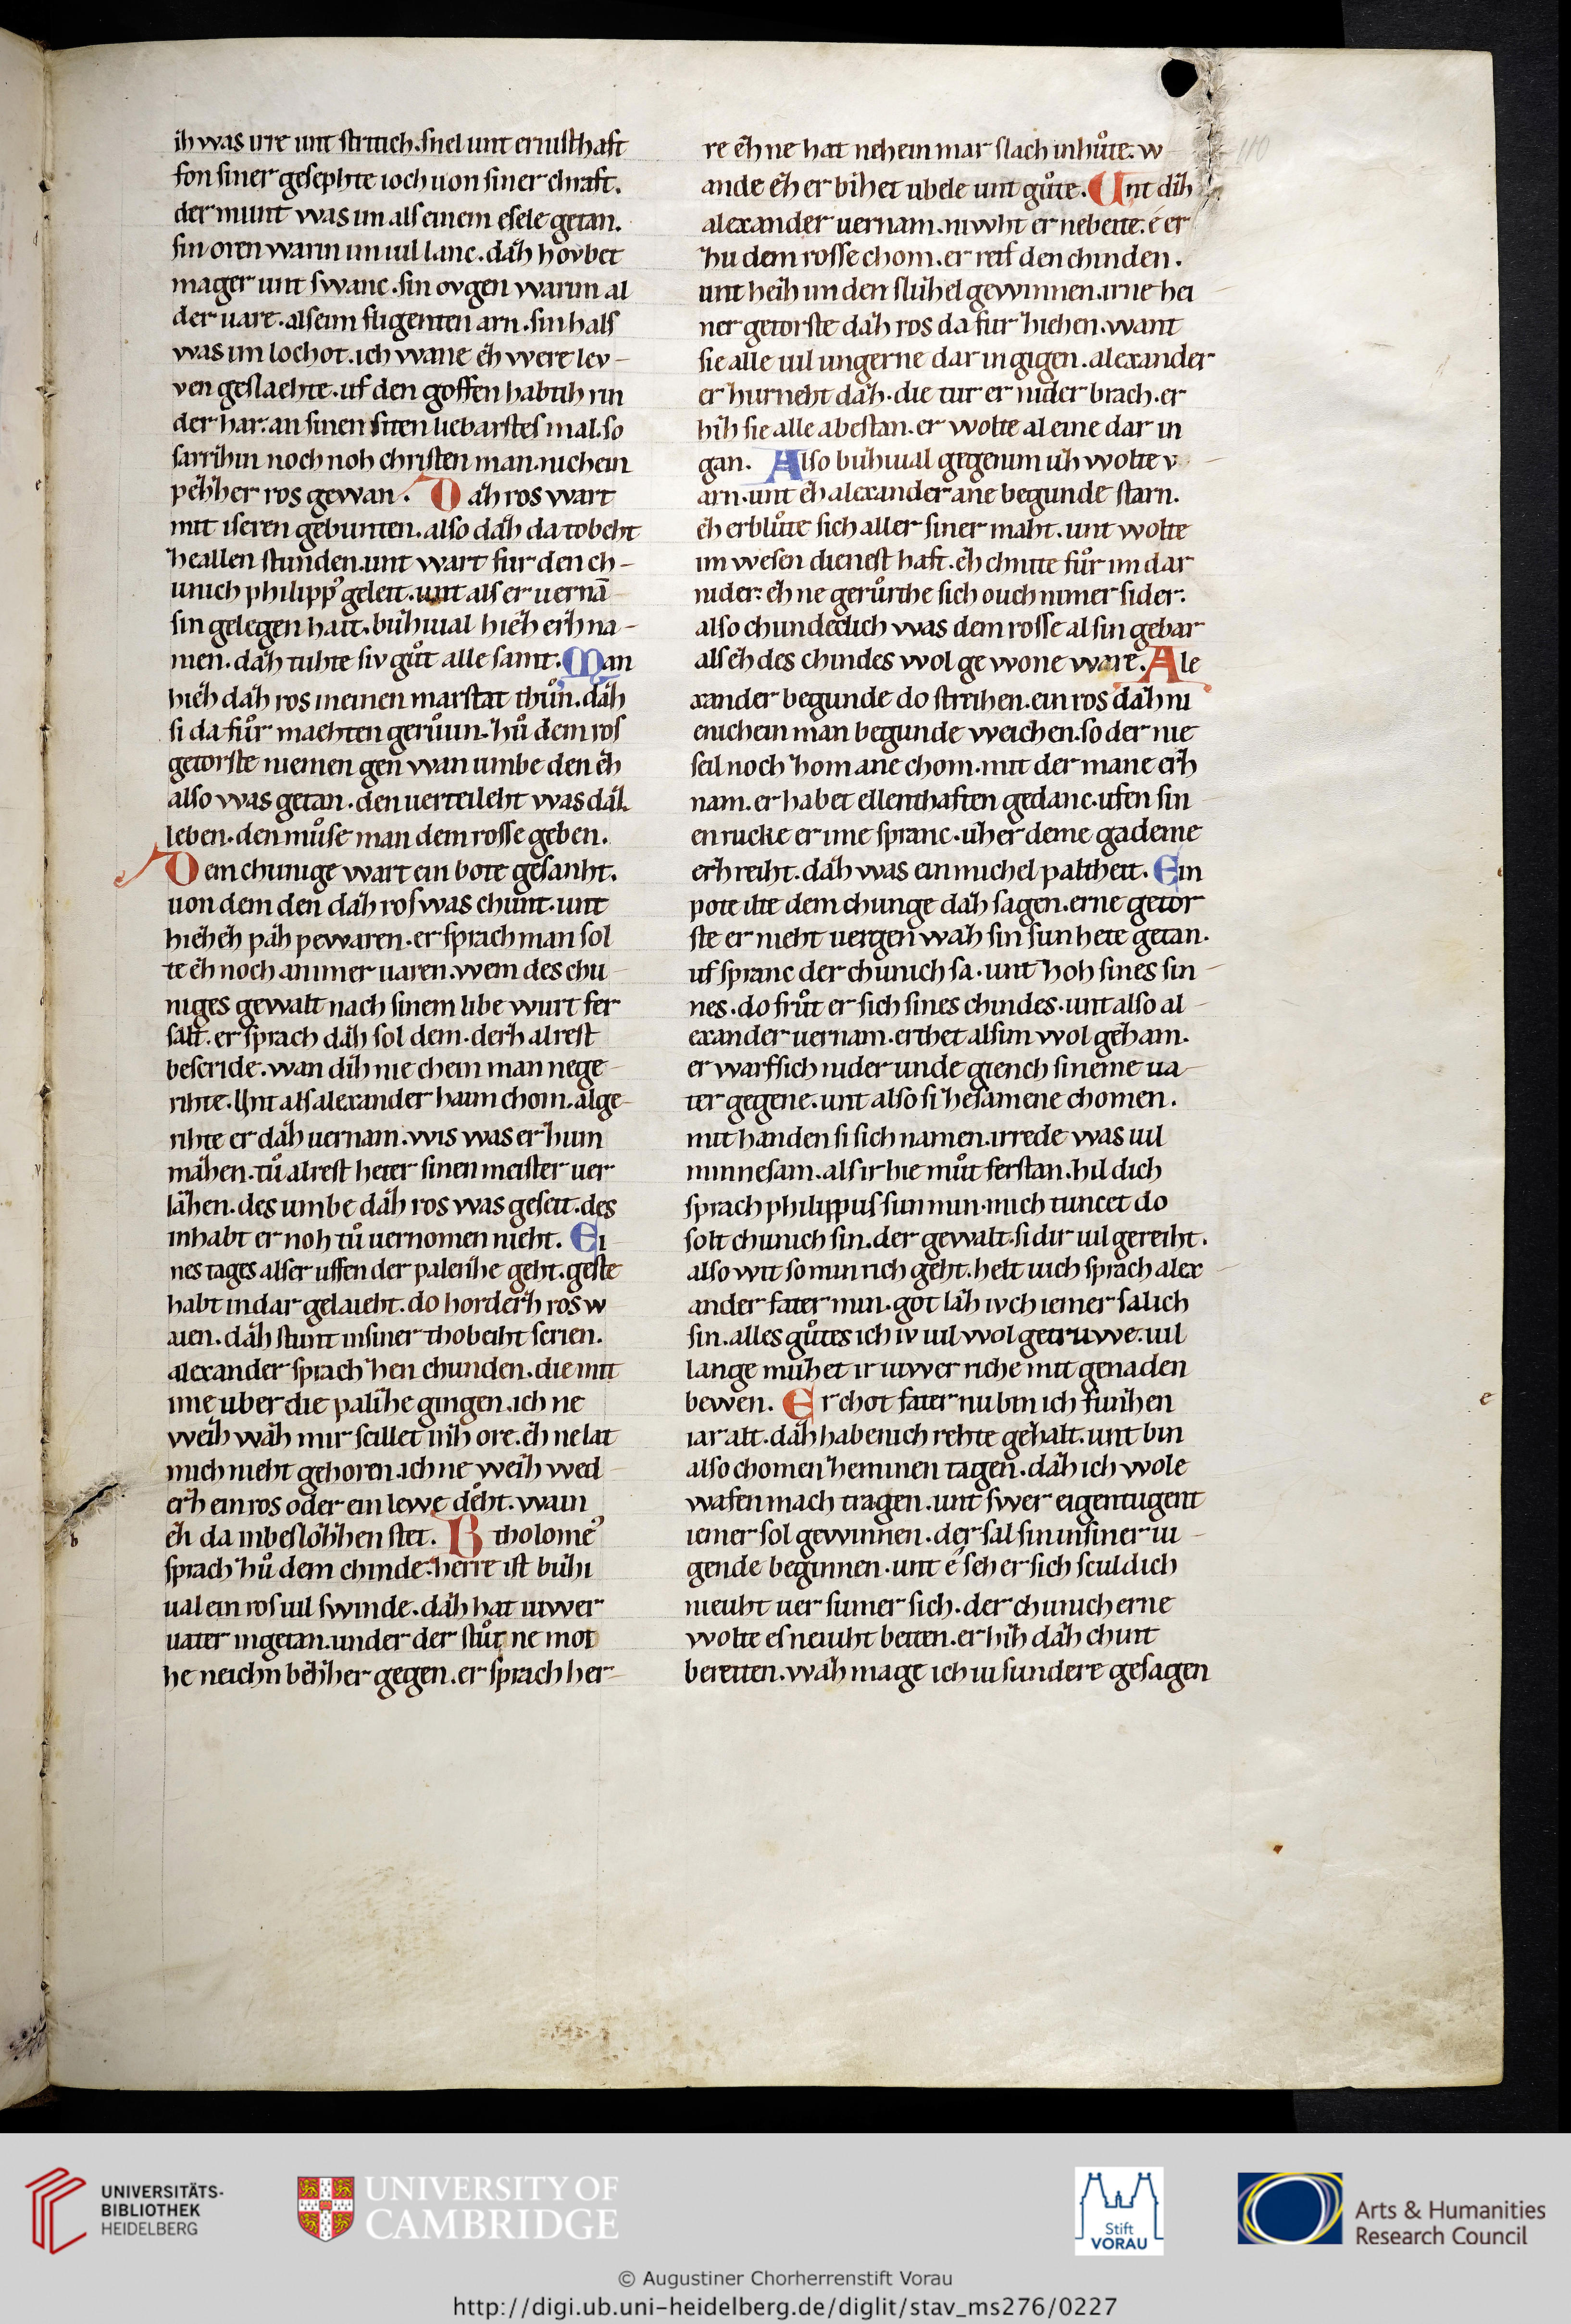 iz was irre unt stritich. snel unt ernisthaft
fon siner gesephte ioch uon siner chraft.
der munt was im als einem esele getan.
sin oren warin im uil lanc. daz hovbet
mager unt swanc. sin ovgen warim al
der uare. alseim fligenten arn. sin hals
was im lochot. ich wane ez were lev-
ven geslaehte. uf den goffen habtiz rin
der har. an sinen siten liebartes mal. so
sarrizin noch noh christen man. nichein
pezzer ros gewan. Daz ros wart
mit iseren gebunten. also daz da tobeht
zeallen stunden. unt wart fur den ch-
unich philipp geleit. unt als er uernā
sin gelegenhait. buzival hiez erz na-
men. daz tuhte siv gůt alle samt. Man
hiez daz ros in einen marstat thůn. daz
si da fůr maehten gerůun. zů dem ros
getorste niemen gen wan umbe den ez
also was getan. den uerteileht was daz
leben. den můse man dem rosse geben.
Dem chunige wart ein bote gesanht.
uon dem den daz ros was chunt. unt
hiez ez paz pewaren. er sprach man sol
te ez noch animer uaren. wem des chu-
niges gewalt nach sinem libe wurt fer
salt. er sprach daz sol dem. derz alrest
bescride. wan diz nie chein man nege-
rihte. Unt als alexander haim chom. alge-
rihte er daz uernam. wis was er zum
mazen. tů alrest heter sinen meister uer
lazen. des umbe daz ros was geseit. des
inhabt er noh tů uernomen nieht. Ei-
nes tages alser uffen der palenze geht. geste
habt in dar gelaieht. do horderz ros w
aien. daz stunt in siner thobeiht scrien.
alexander sprach zen chunden. die mit
ime uber die palize gingen. ich ne
weiz waz mir scillet inz ore. ez ne lat
mich nieht gehoren. ich ne weiz wed-
erz ein ros oder ein lewe deht. wain
ez da inbeslozzen stet. Btholome
sprach zů dem chinde. herre ist buzi
ual ein ros uil swinde. daz hat iuwer
uater ingetan. under der stůt ne mot
he neichn bezzer gegen. er sprach her-
re ez ne hat nehein marslach in hůte. w-
ande ez er bizet ubele unt gůte. Unt diz
alexander uernam. niwht er nebeite. e er
zu dem rosse chom. er reif den chinden.
unt heiz im den sluzel gewinnen. irne hei
ner getorste daz ros da fur ziehen. want
sie alle uil ungerne dar in gigen. alexander
erzurneht daz. die tur er nider brach. er
hiz sie alle abestan. er wolte aleine dar in
gan. Also buzival gegen im uz wolte v
arn. unt ez alexander ane begunde starn.
ez erblůte sich aller siner maht. unt wolte
im wesen dienesthaft. ez chnite fůr im dar
nider. ez ne gerůrthe sich ouch nimer sider.
also chundeclich was dem rosse al sin gebar
als ez des chindes wol gewone ware. Ale
xander begunde do streihen. ein ros daz ni
enichein man begunde weichen. so der nie
seil noch zom ane chom. mit der mane erz
nam. er habet ellenthaften gedanc. ufen sin
en rucke er ime spranc. uzer deme gademe
erz reiht. daz was ein michel paltheit. Ein
pote ilte dem chunge daz sagen. erne getor
ste er nieht uergen waz sin sun hete getan.
uf spranc der chunich sa. unt zoh sines sin-
nes. do frůt er sich sines chindes. unt also al-
exander uernam. er thet als im wol gezam.
er warf sich nider unde giench sineme ua-
ter gegene. unt also si zesamene chomen.
mit handen si sich namen. ir rede was uil
minnesam. als ir hie můt ferstan. hil dich
sprach philippus sun min. mich tuncet do
solt chunich sin. der gewalt si dir uil gereiht.
also wit so min rich geht. helt uich sprach alex-
ander fater min. got laz ivch iemer salich
sin. alles gůtes ich iv uil wol getruwe. uil
lange muzet ir iuwer riche mit genaden
bewen. Er chot fater nu bin ich funzen
iar alt. daz haben ich rehte gezalt. unt bin
also chomen zeminen tagen. daz ich wole
wafen mach tragen. unt swer eigentugent
iemer sol gewinnen. der sal sin in siner iu-
gende beginnen. unt e seh er sich sculdich
nieuht uer sumer sich. der chunich erne
wolte es neiuht beiten. er hiz daz chint
bereiten. waz mage ich iu sundere gesagen
110
UNIVERSITÄTS-
BIBLIOTHEK
HEIDELBERG
UNIVERSITY OF
CAMBRIDGE
Stift
VORAU
Arts & Humanities
Research Council
© Augustiner Chorherrenstift Vorau
http://digi.ub.uni-heidelberg.de/diglit/stav_ms276/0227